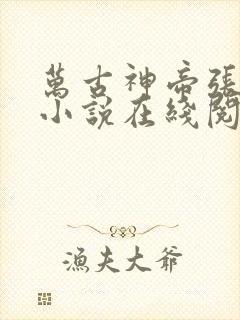 萬古神帝張
小說在綫閱
漁夫大爺